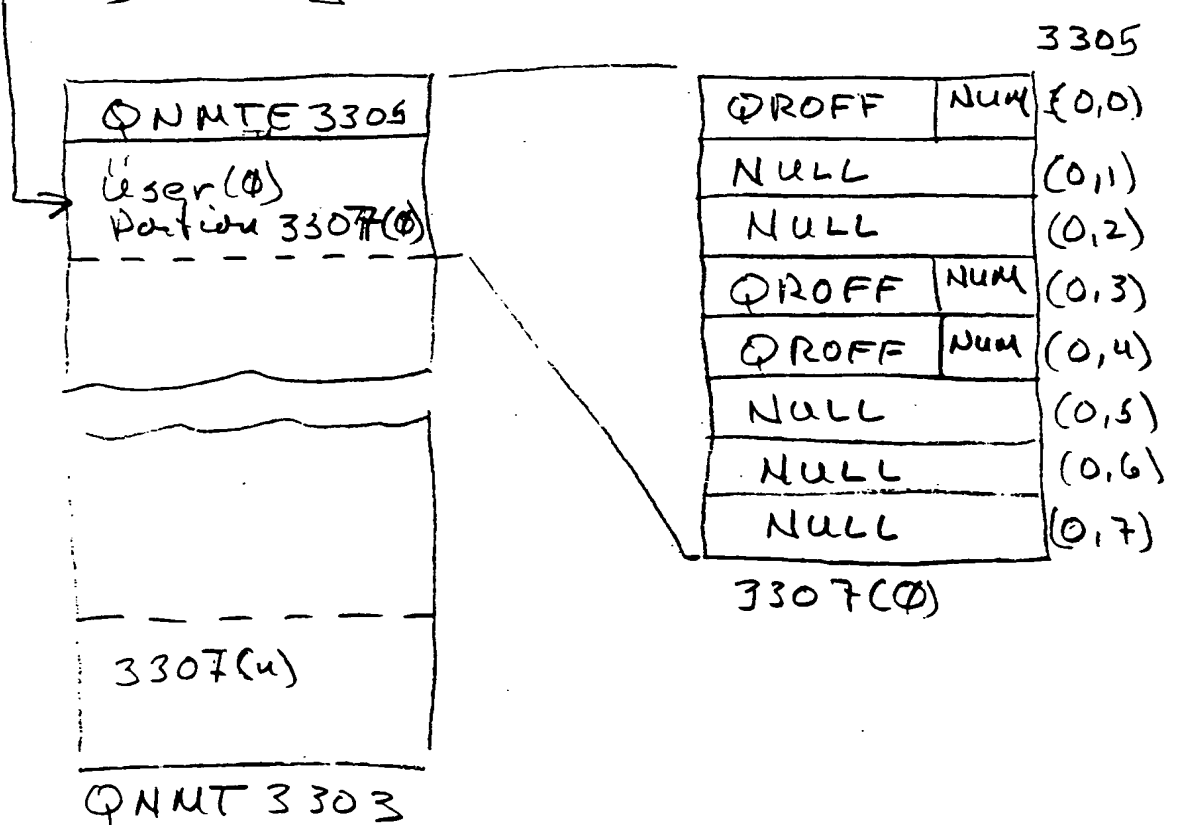 3305
QNMTE 3305
User(Ø)
Portion 3307(Ø)
3307(u)
QNMT 3303
QROFF NUM (0,0)
NULL (0,1)
NULL (0,2)
QROFF NUM (0,3)
QROFF NUM (0,4)
NULL (0,5)
NULL (0,6)
NULL (0,7)
3307(Ø)